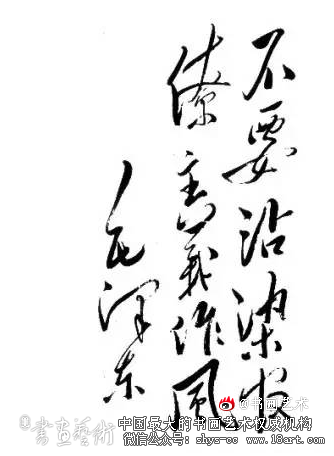 不要沾染官
僚主义作风
毛泽东
@书画艺术
书画艺术
中国最大的书画艺术权威机构
微信公众号：shys-cc www.18art.com